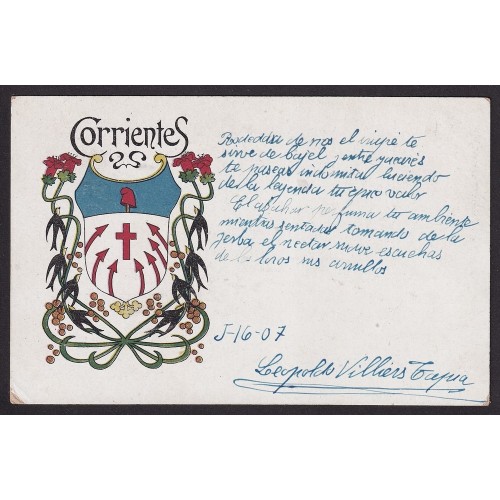 Corrientes
Rodeada de nos el irupé te
sirve de bajel, entre yacarés
te paseas indomita luciendo
de la leyenda tu epico valor
El azahar perfuma tu ambiente
mientras sentada tomando de la
yerba el nectar nuevo escuchas
de loros sus arrullos
J-16-07
Leopoldo Villiers Tapia